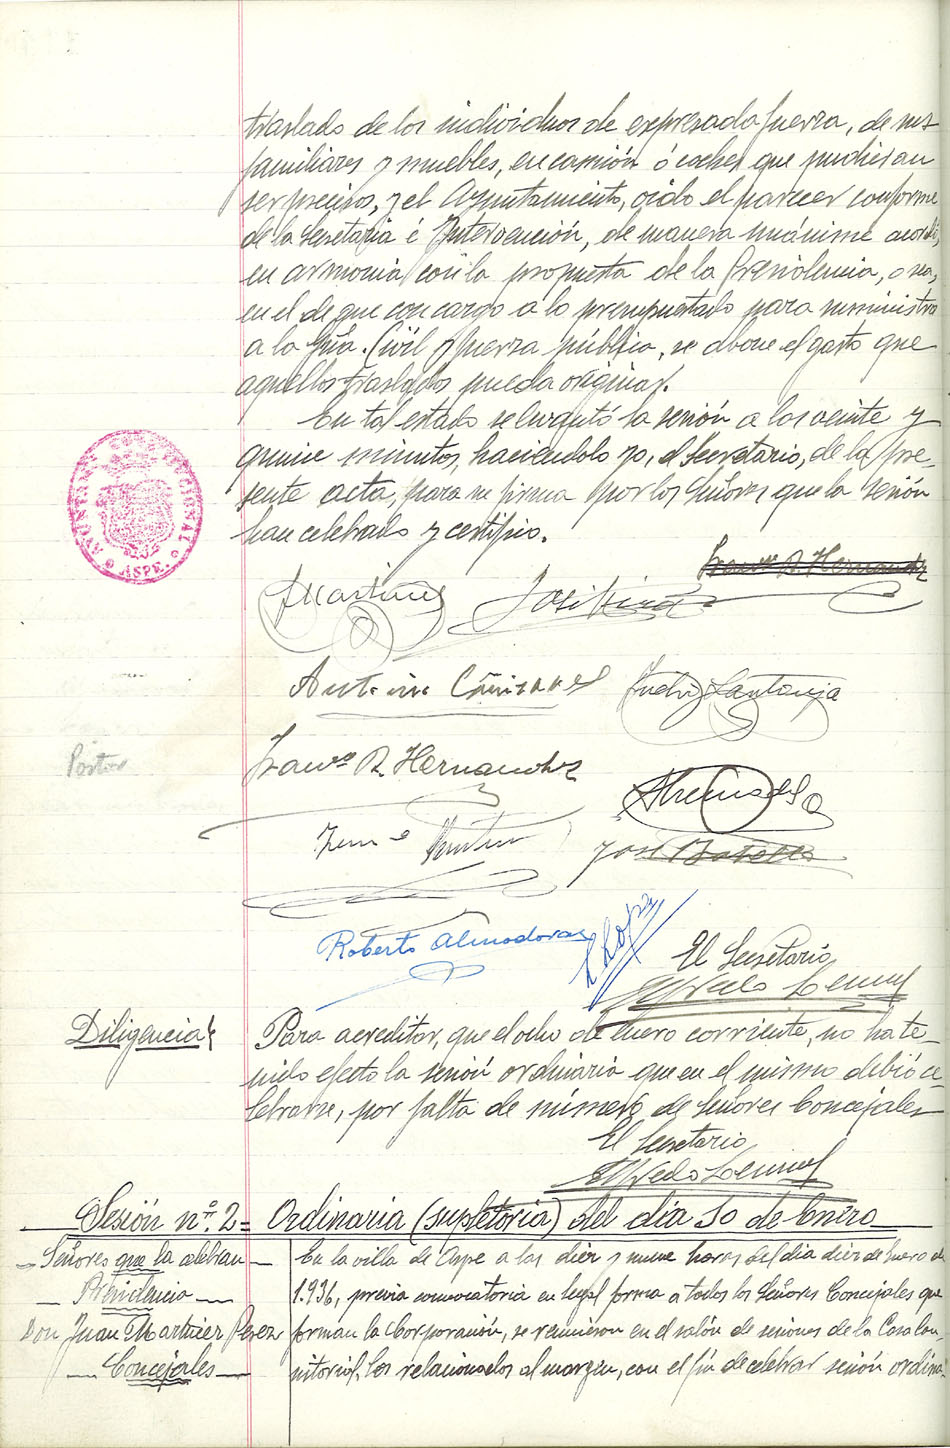 traslado de los individuos de expresada fuerza, de sus
familiares y muebles, en camión ó coches que pudieran
ser precisos, y el Ayuntamiento, oido el parecer conforme
de la Secretaria é Intervención, de manera unánime acordó,
en armonia con la propuesta de la Presidencia, o sea,
en el de que con cargo a lo presupuestado para suministro
a la Gña. Civil y fuerza pública, se abone el gasto que
aquellos traslados pueda originar.
En tal estado se levantó la sesión a las veinte y
quince minutos, haciendolo yo, el Secretario, de la pre-
sente acta, para su firma por los Señores que la sesión
han celebrado y certifico.
AYUNTAMIENTO CONSTITUCIONAL
ASPE.
Franco R. Hernandez
JMartinez
Antonio Cañizares
Franco R. Hernandez
Pastor
José Botella
Roberto Almodovar
El Secretario
Alfredo
Diligencia
Para acreditar, que el ocho de Enero corriente, no ha te-
nido efecto la sesión ordinaria que en el mismo debió ce-
lebrarse, por falta de número de Señores Concejales
El Secretario
Alfredo
Sesión nº. 2 = Ordinaria (supletoria) del dia 10 de Enero
Señores que la celebran
Presidencia
Don Juan Martinez Perez
Concejales
En la villa de Aspe a las diez y nueve horas del dia diez de Enero de
1.936, previa convocatoria en legal forma a todos los Señores Concejales que
forman la Corporación, se reunieron en el salón de sesiones de la Casa Con-
sistorial, los relacionados al margen, con el fin de celebrar sesión ordina-